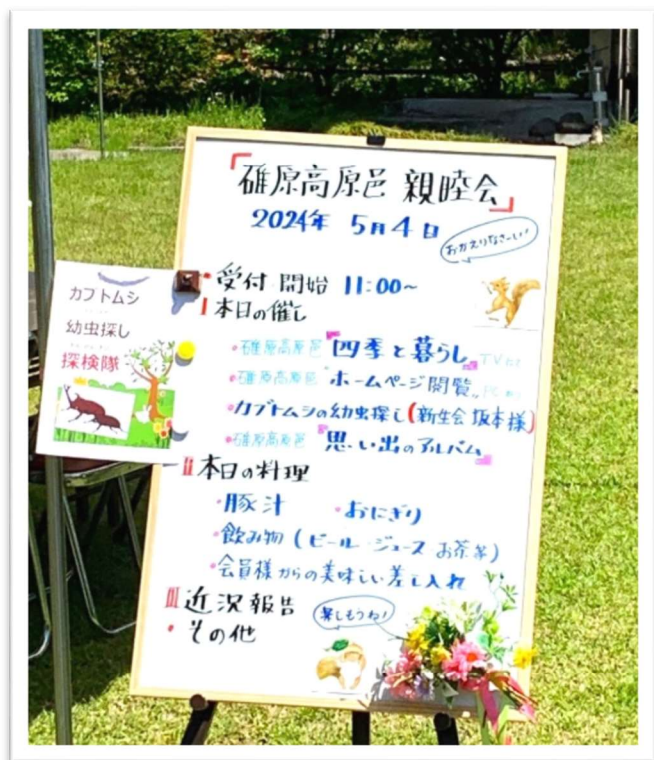 「碓原高原邑 親睦会」
2024年 5月4日
おかえりなさーい!
・受付 開始 11:00~
I 本日の催し
・碓原高原邑 『四季と暮らし』 TVにて
・碓原高原邑 "ホームページ閲覧"
・カブトムシの幼虫探し(新生会 坂本様)
・碓原高原邑 『思い出のアルバム』
II 本日の料理
・豚汁 ・おにぎり
・飲み物(ビール ジュース お茶等)
・会員様からの美味しい差し入れ
III 近況報告
・その他
楽しもうね!
カブトムシ
幼虫探し
探検隊